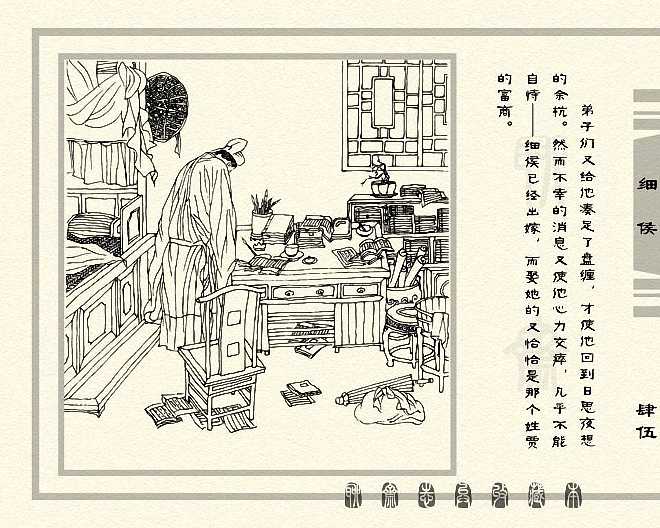 弟子们又给他凑足了盘缠，才使他回到日思夜想
的余杭。然而不幸的消息又使他心力交瘁，几乎不能
自恃——细侯已经出嫁，而娶她的又恰恰是那个姓贾
的富商。
细侯
肆伍
聊斋志异收藏本